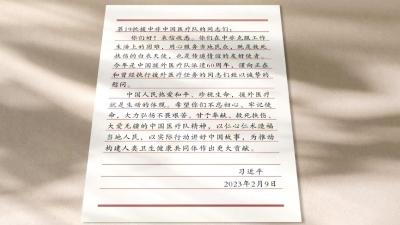 第19批援中非中国医疗队的同志们：
你们好！来信收悉。你们在中非克服工作
生活上的困难，用心服务当地民众，既是救死
扶伤的白衣天使，也是传递情谊的友好使者。
今年是中国援外医疗队派遣60周年，谨向正在
和曾经执行援外医疗任务的同志们致以诚挚的
慰问。
中国人民热爱和平、珍视生命，援外医疗
就是生动的体现。希望你们不忘初心、牢记使
命，大力弘扬不畏艰苦、甘于奉献、救死扶伤、
大爱无疆的中国医疗队精神，以仁心仁术造福
当地人民，以实际行动讲好中国故事，为推动
构建人类卫生健康共同体作出更大贡献。
习近平
2023年2月9日